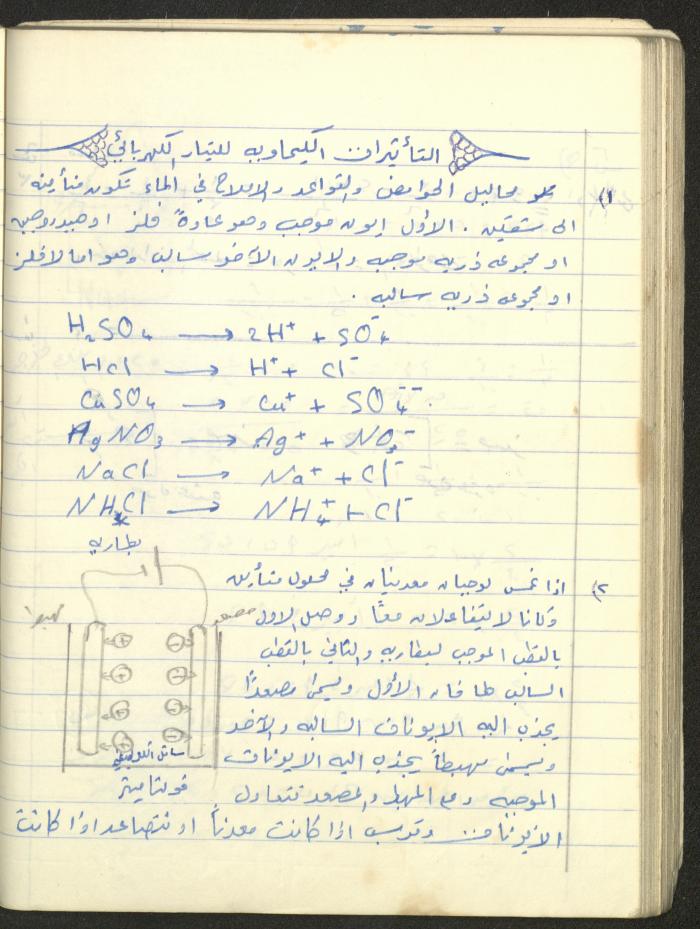 التأثيرات الكيماويه للتيار الكهربائي
١) محاليل الحوامض والقواعد والاملاح في الماء تكون متأينه
الى شقين . الأول ايون موجب وهو عادةً فلز او هيدروجين
او مجموعه ذريه موجبه والايون الآخر سالب وهو اما لافلز
او مجموعه ذريه سالبه .
H₂SO₄ → 2H⁺ + SO₄⁻
HCl → H⁺ + Cl⁻
CuSO₄ → Cu⁺ + SO₄⁻⁻ .
AgNO₃ → Ag⁺ + NO₃⁻
NaCl → Na⁺ + Cl⁻
NH₄Cl → NH₄⁺ + Cl⁻
٢) اذا غمس لوحيان معدنيان في محلول متأين
وكانا لا يتفاعلان معًا ووصل الاول
بالقطب الموجب لبطاريه والثاني بالقطب
السالب طافان الأول ويسمى مصعدًا
يجذب اليه الايونات السالبه والآخر
ويسمى مهبطاً يجذب اليه الايونات
الموجبه وعلى المهبط والمصعد تتعادل
الايونات وترسب اذا كانت معدناً او تتصاعد اذا كانت
بطاريه
مصعد
مهبط
+ −
+ −
+ −
+ −
سائل الكتروليتي
فولتاميتر